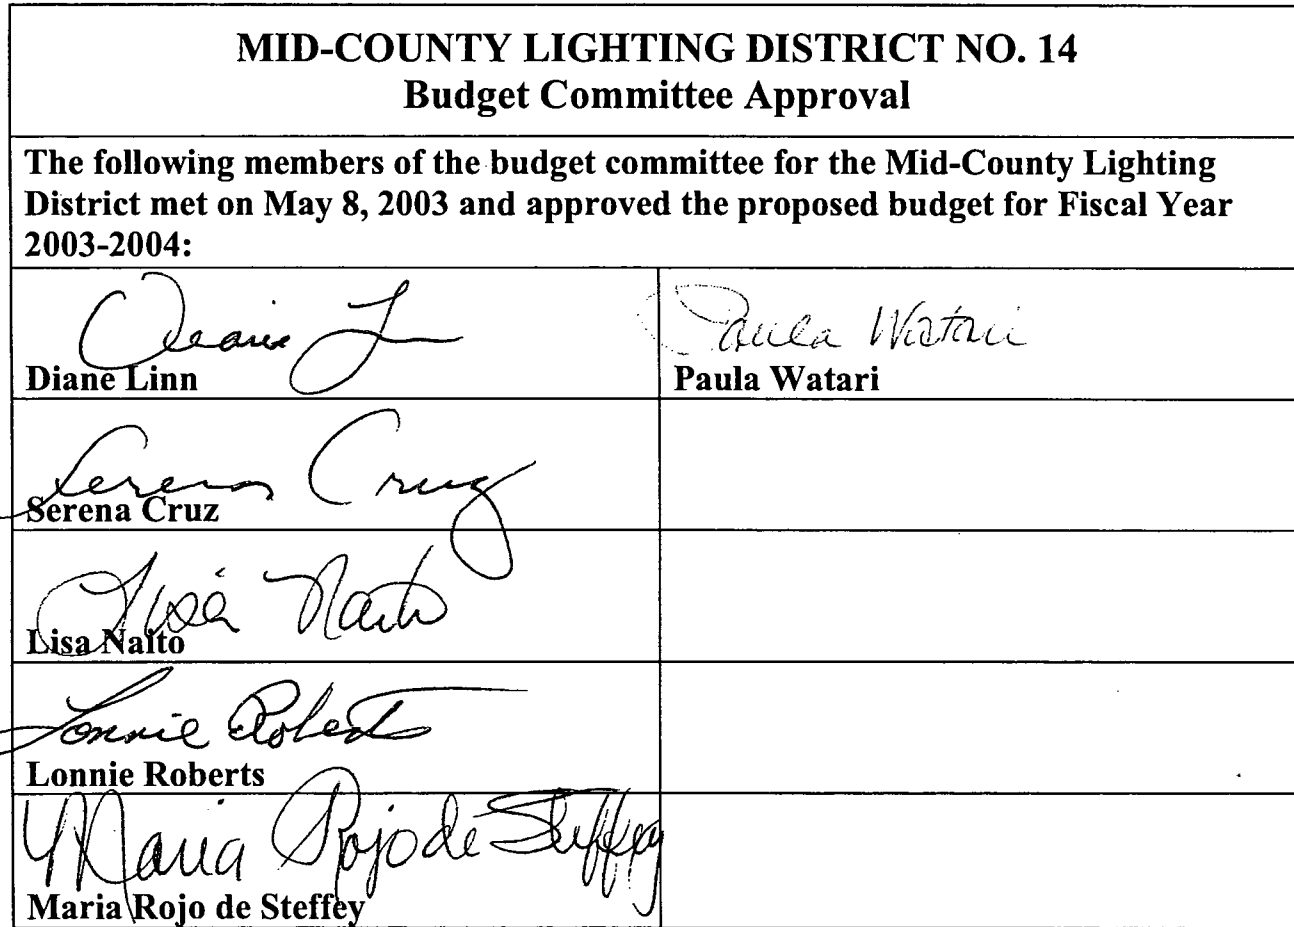 MID-COUNTY LIGHTING DISTRICT NO. 14
Budget Committee Approval
The following members of the budget committee for the Mid-County Lighting
District met on May 8, 2003 and approved the proposed budget for Fiscal Year
2003-2004:
Diane L
Diane Linn
Paula Watari
Paula Watari
Serena Cruz
Serena Cruz
Lisa Naito
Lisa Naito
Lonnie Roberts
Lonnie Roberts
Maria Rojo de Steffey
Maria Rojo de Steffey